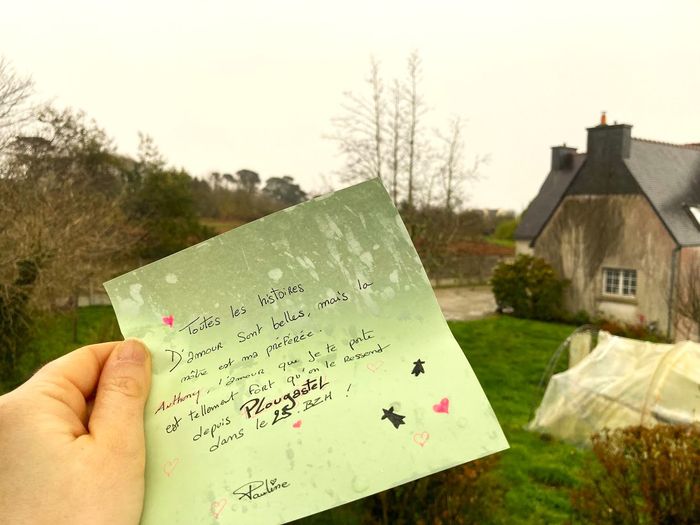 Toutes les histoires
D'amour sont belles, mais la
nôtre est ma préférée.
Anthony, l'amour que je te porte
est tellement fort qu'on le ressend
depuis PLougastel
dans le 29. BZH !
Pauline